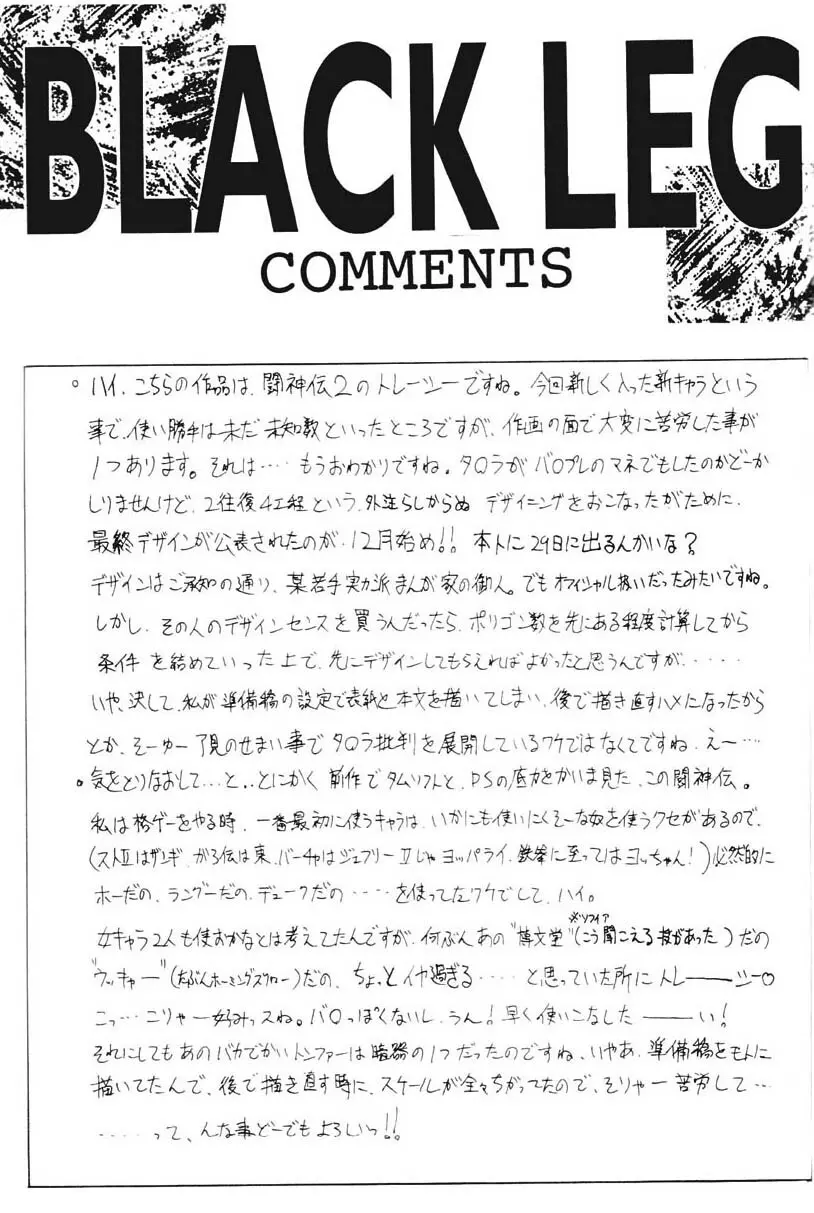 BLACK LEG
COMMENTS
。ハイ、こちらの作品は、闘神伝2のトレーシーですね。今回新しく入った新キャラという
事で、使い勝手は未だ未知数といったところですが、作画の面で大変に苦労した事が
1つあります。それは‥‥もうおわかりですね。タカラがバロプレのマネでもしたのかどーか
しりませんけど、2往復4工程という、外注らしからぬ デザイニングをおこなったがために、
最終デザインが公表されたのが、12月始め!! 本トに29日に出るんかいな?
デザインはご承知の通り、某若手実力派まんが家の御人。でもオフィシャル扱いだったみたいですね。
しかし、その人のデザインセンスを買うんだったら、ポリゴン数を先にある程度計算してから
条件を結めていった上で、先にデザインしてもらえればよかったと思うんですが、‥‥‥
いや、決して、私が準備稿の設定で表紙と本文を描いてしまい、後で描き直すハメになったから
とか、そーゆー了見のせまい事でタカラ批判を展開しているワケではなくてですね、え〜‥‥
。気をとりなおして‥と‥とにかく 前作でタムソフトと、PSの底力をかいま見た、この闘神伝。
私は格ゲーをやる時、一番最初に使うキャラは、いかにも使いにくそーな奴を使うクセがあるので、
(ストIIはザンギ、がろ伝は東、バーチャはジェフリー IIじゃヨッパライ、鉄拳に至ってはヨッちゃん!)必然的に
ホーだの、ラングーだの、デュークだの‥‥を使ってたワケでして、ハイ。
※ソフィア
女キャラ2人も使おかなとは考えてたんですが、何ぶんあの"博文堂"(こう聞こえる技があった)だの
"ウッキャー"(たぶんホーミングスクロー)だの、ちょっとイヤ過ぎる‥‥と思っていた所にトレ━━シー♡
こっ‥こりゃー好みっスね。バロっぽくないし、うん!早く使いこなした━━い!
それにしてもあのバカでかいトンファーは暗器の1つだったのですね、いやあ、準備稿をモトに
描いてたんで、後で描き直す時に、スケールが全々ちがってたので、そりゃー苦労して‥‥
‥‥‥って、んな事どーでもよろしいっ!!